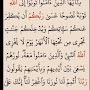 يَٰٓأَيُّهَا ٱلَّذِينَ ءَامَنُوا۟ تُوبُوٓا۟ إِلَى ٱللَّهِ
تَوْبَةً نَّصُوحًا عَسَىٰ رَبُّكُمْ أَن يُكَفِّرَ
عَنكُمْ سَيِّـَٔاتِكُمْ وَيُدْخِلَكُمْ جَنَّٰتٍ
تَجْرِى مِن تَحْتِهَا ٱلْأَنْهَٰرُ يَوْمَ لَا يُخْزِى
ٱللَّهُ ٱلنَّبِىَّ وَٱلَّذِينَ ءَامَنُوا۟ مَعَهُۥ نُورُهُمْ
يَسْعَىٰ بَيْنَ أَيْدِيهِمْ وَبِأَيْمَٰنِهِمْ يَقُولُونَ